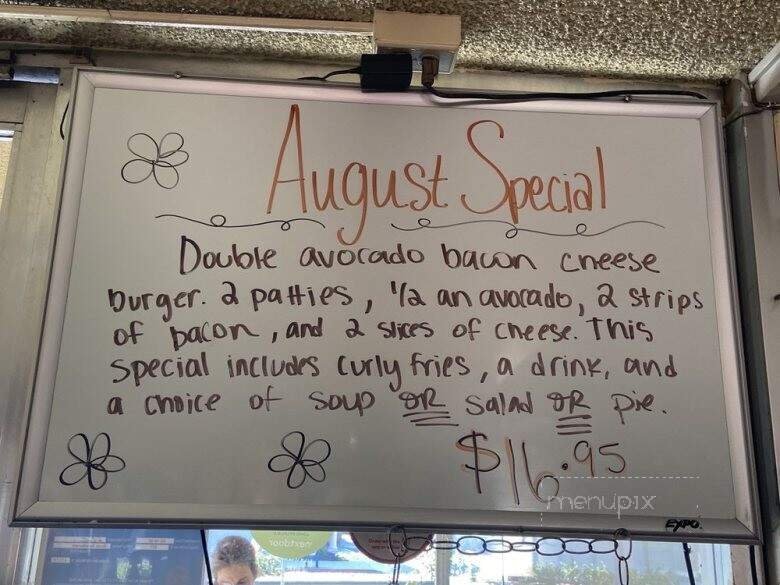 August Special
Double avocado bacon cheese
burger. 2 patties, 1/2 an avocado, 2 strips
of bacon, and 2 slices of cheese. This
special includes curly fries, a drink, and
a choice of soup OR salad OR pie.
$16.95
menupix
EXPO
nextdoor